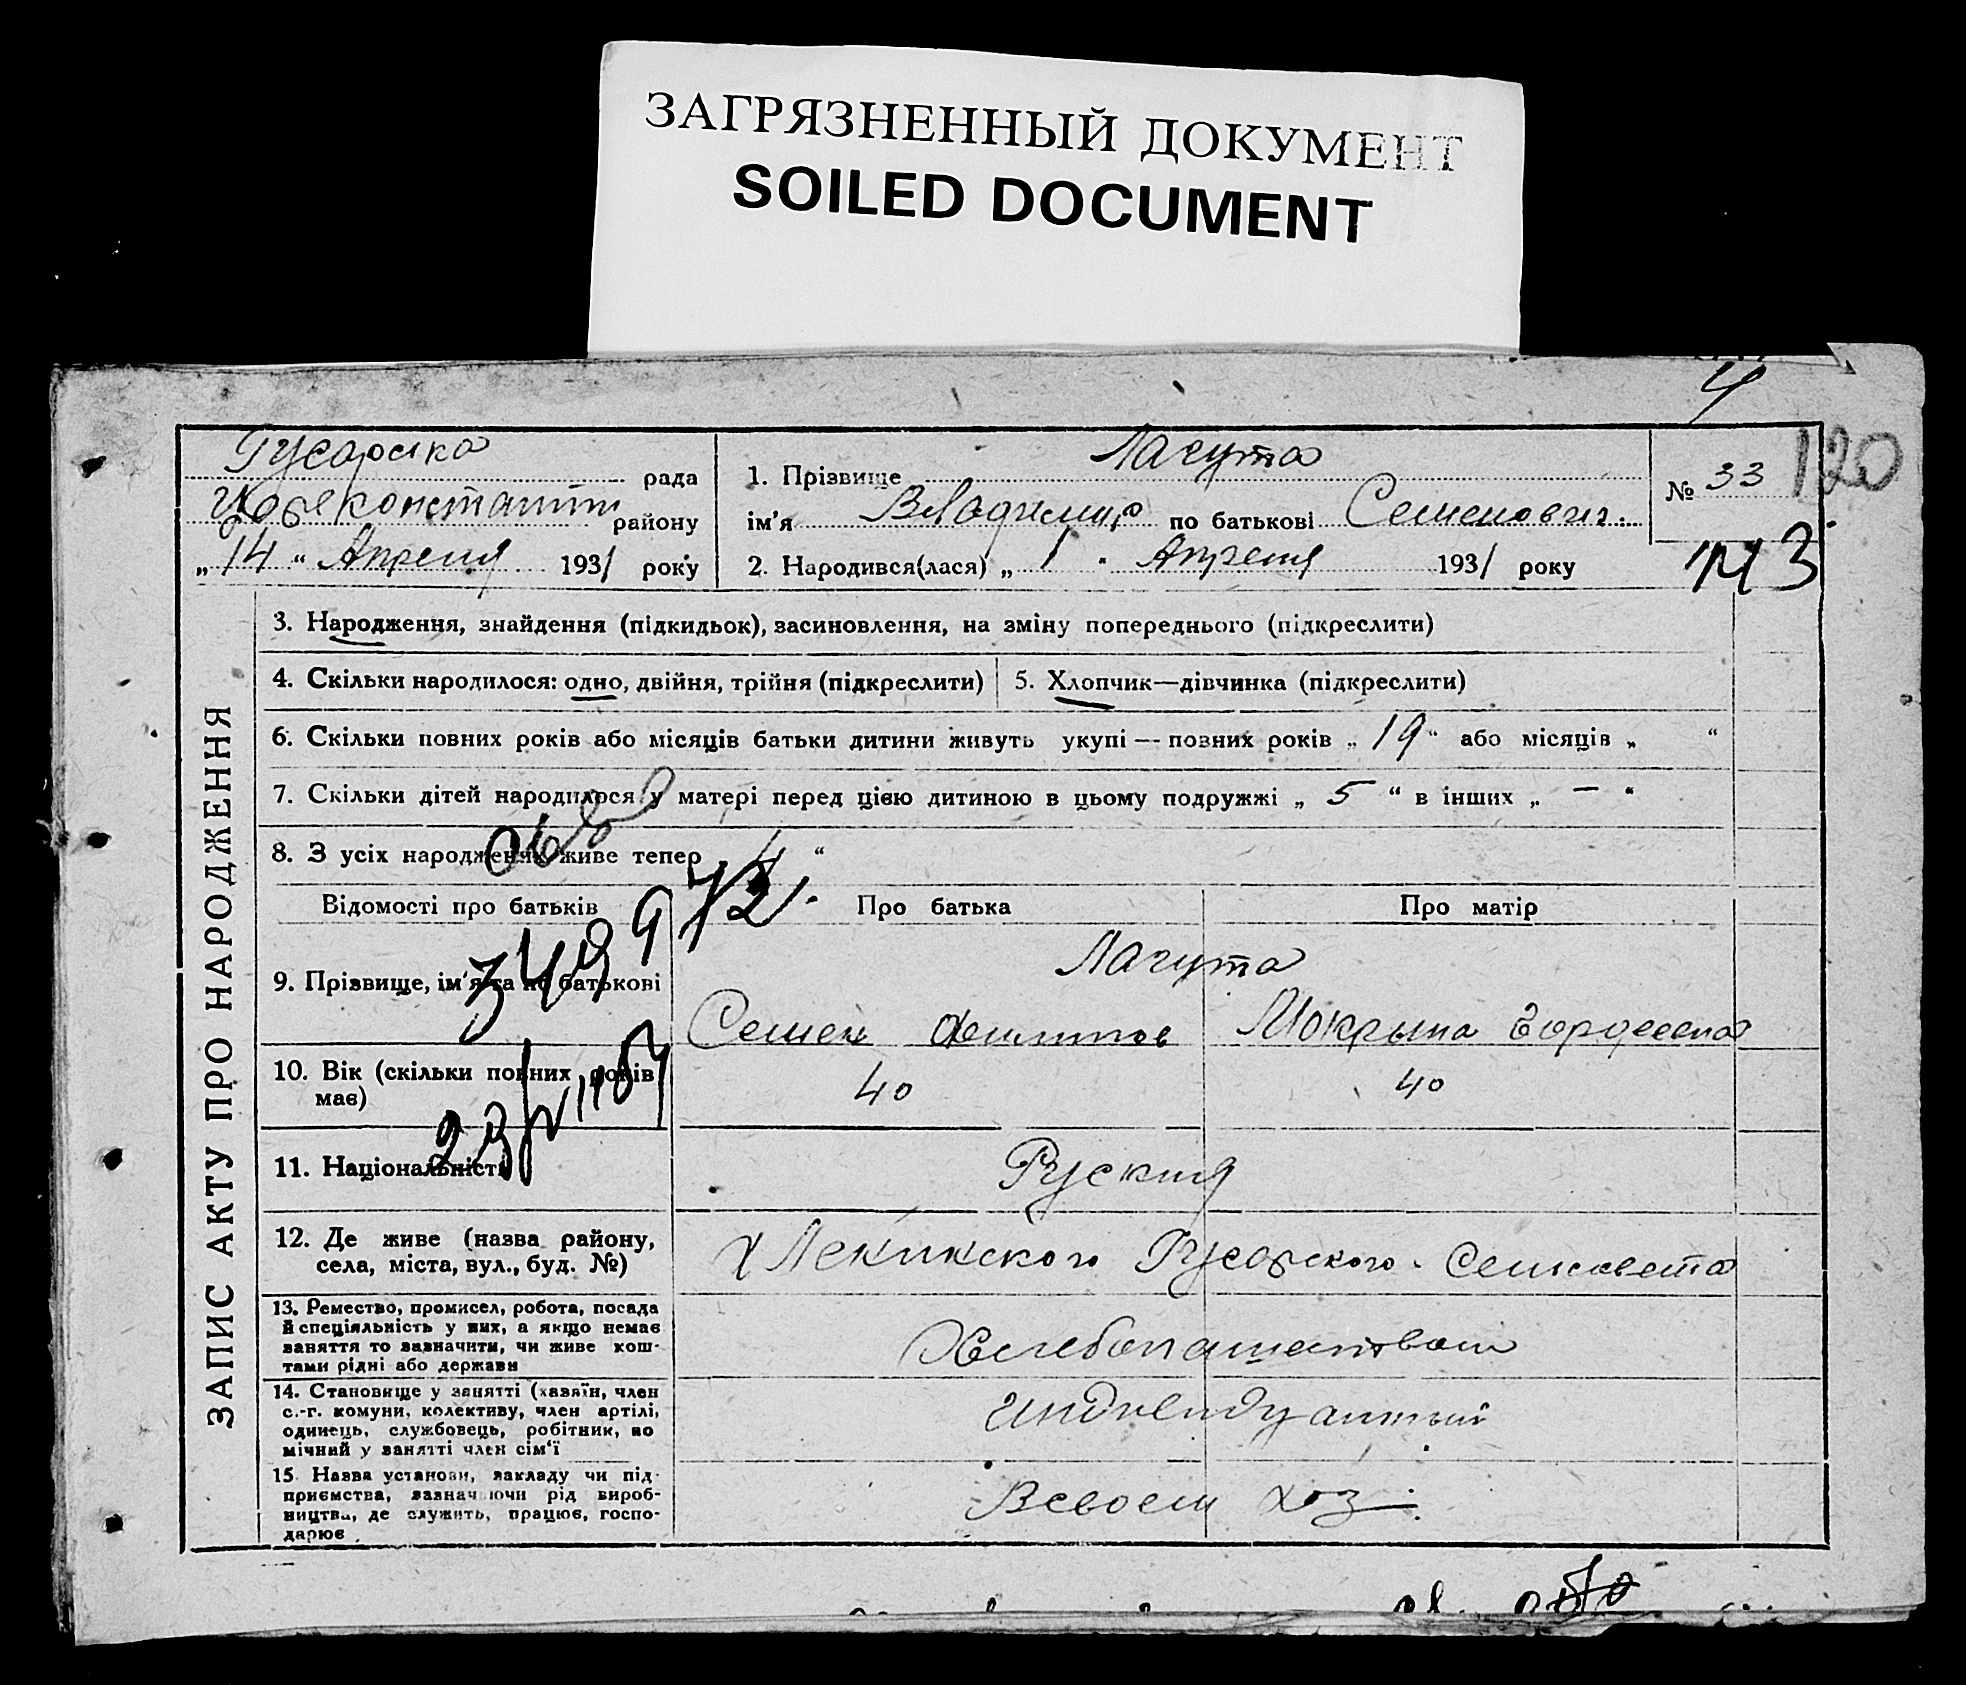 ЗАГРЯЗНЕННЫЙ ДОКУМЕНТ
SOILED DOCUMENT
Гусарська рада
районy
„14“ Апреля 1931 року
1. Прізвище Лагута
ім'я Владимир по батькові Семенович.
2. Народився(лася) „1“ Апреля 1931 року
№ 33
120
ЗАПИС АКТУ ПРО НАРОДЖЕННЯ
3. Народження, знайдення (підкидьок), засиновлення, на зміну попереднього (підкреслити)
4. Скільки народилося: одно, двійня, трійня (підкреслити)
5. Хлопчик—дівчинка (підкреслити)
6. Скільки повних років або місяців батьки дитини живуть укупі — повних років „19“ або місяців „ “
7. Скільки дітей народилося у матері перед цією дитиною в цьому подружжі „5“ в інших „—“
8. З усіх народжених живе тепер „4“
Відомості про батьків
Про батька
Про матір
9. Прізвище, ім'я та по батькові
Лагута
Семен
Мокрына
10. Вік (скільки повних років має)
40
40
11. Національність
Руския
12. Де живе (назва району,
села, міста, вул., буд. №)
х Лекинского Гусарского Сельсовета
13. Ремество, промисел, робота, посада
й спеціяльність у них, а якщо немає
заняття то зазначити, чи живе кош-
тами рідні або держави
Хлебопашеством
14. Становище у занятті (хазяїн, член
с.-г. комуни, колективу, член артілі,
одинець, службовець, робітник, по
мічний у занятті член сім'ї
индивидуальный
15. Назва установи, закладу чи під-
приємства, зазначаючи рід вироб-
ництва, де служить, працює, госпо-
дарює
Всвоем хоз.